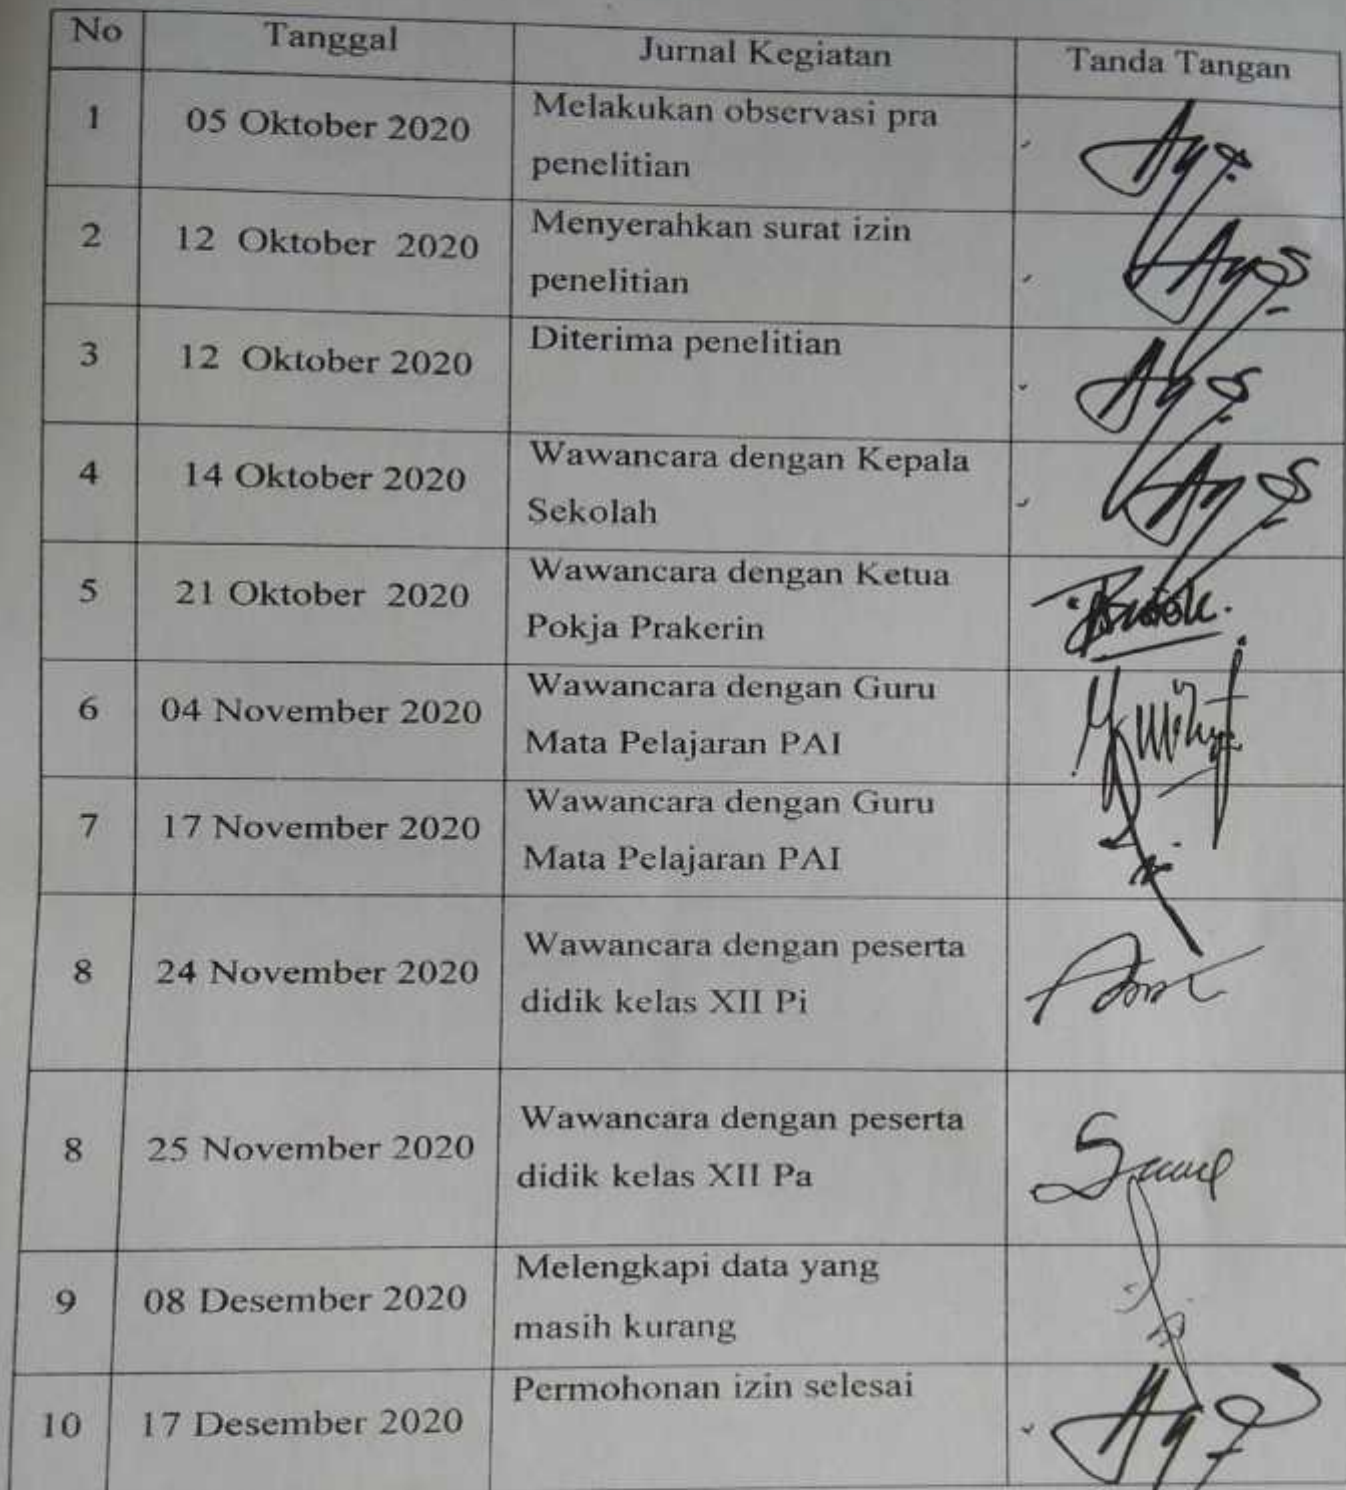 No Tanggal Jurnal Kegiatan Tanda Tangan
1 05 Oktober 2020 Melakukan observasi pra
penelitian
2 12 Oktober 2020 Menyerahkan surat izin
penelitian
3 12 Oktober 2020 Diterima penelitian
4 14 Oktober 2020 Wawancara dengan Kepala
Sekolah
5 21 Oktober 2020 Wawancara dengan Ketua
Pokja Prakerin
6 04 November 2020 Wawancara dengan Guru
Mata Pelajaran PAI
7 17 November 2020 Wawancara dengan Guru
Mata Pelajaran PAI
8 24 November 2020 Wawancara dengan peserta
didik kelas XII Pi
8 25 November 2020 Wawancara dengan peserta
didik kelas XII Pa
9 08 Desember 2020 Melengkapi data yang
masih kurang
10 17 Desember 2020 Permohonan izin selesai